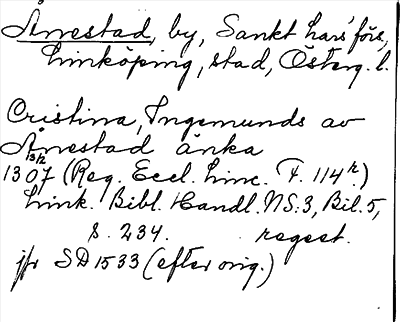 Ånestad, by, Sankt Lars' förs.,
Linköping, stad, Österg. l.
Cristina, Ingemunds av
Ånestad änka
13/2
1307 (Reg. Eccl. Linc. F. 114 r.)
Link. Bibl. Handl. NS:3, Bil. 5,
s. 234. regest.
jfr SD 1533 (efter orig.)